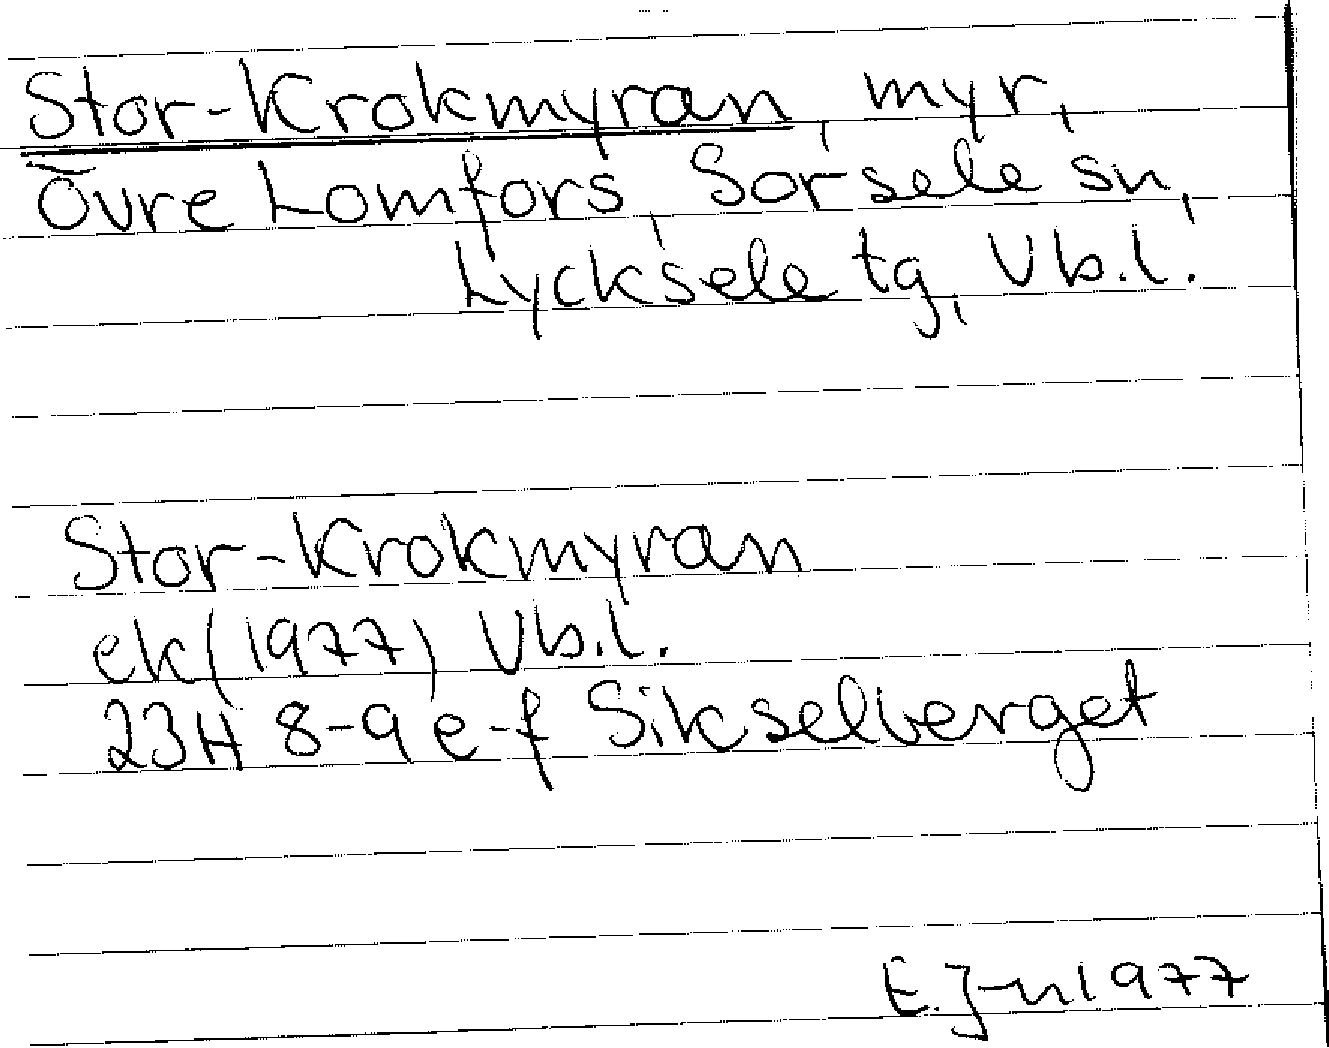 Stor-Krokmyran, myr,
Övre Lomfors, Sorsele sn,
Lycksele tg, Vb.l.
Stor-Krokmyran
ek (1977) Vb.l.
23H 8-9 e-f Sikselberget
E. J-n 1977